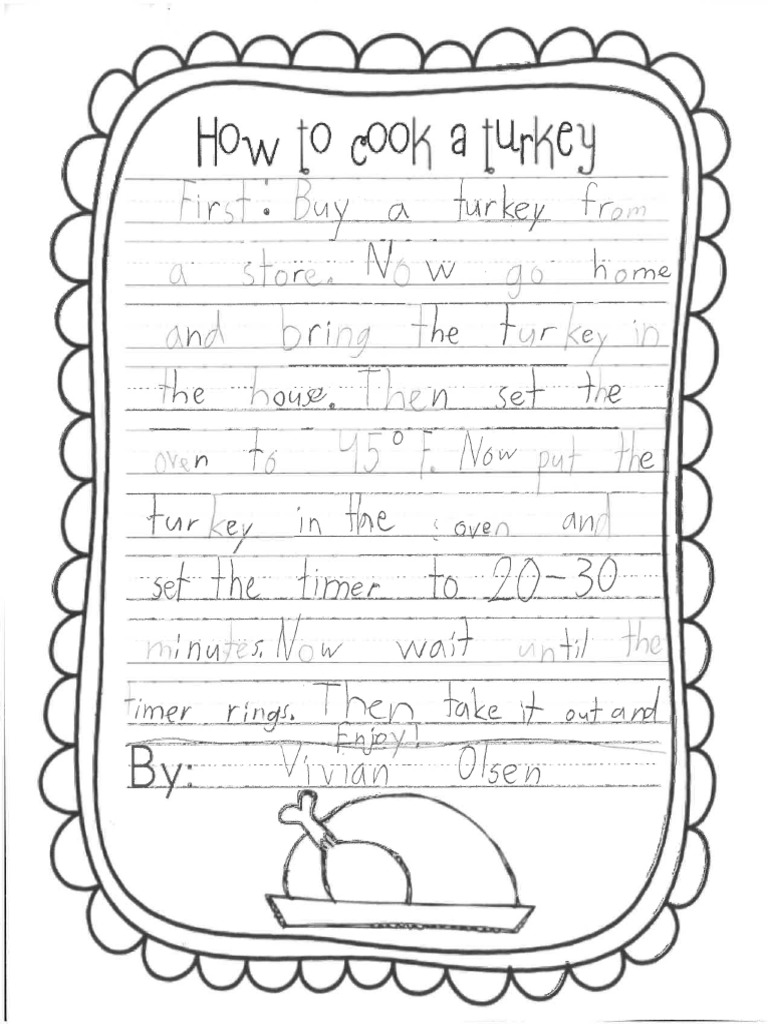 How to cook a turkey
First: Buy a turkey from
a store. Now go home
and bring the turkey in
the house. Then set the
oven to 45° F. Now put the
turkey in the oven and
set the timer to 20-30
minutes. Now wait until the
timer rings. Then take it out and
Enjoy!
By: Vivian Olsen